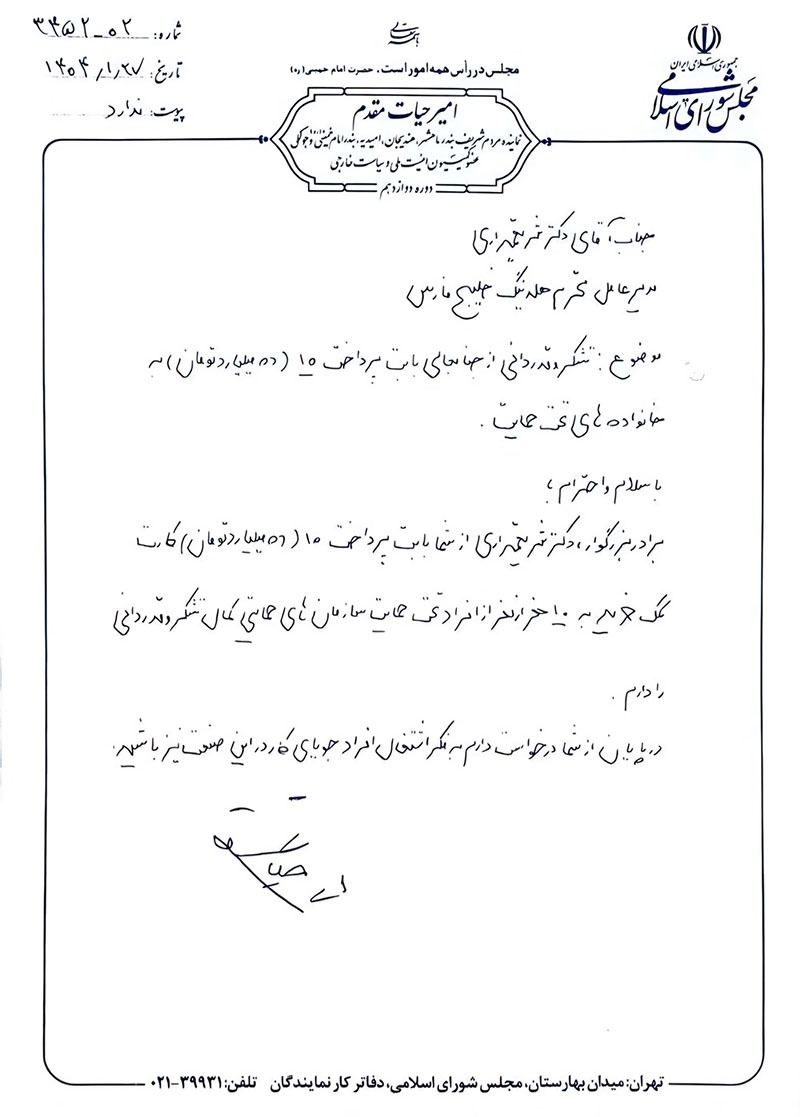 جمهوری اسلامی ایران
مجلس شورای اسلامی
باسمه تعالی
مجلس در رأس همه امور است. حضرت امام خمینی (ره)
شماره: ۰۲-۳۴۵۲
تاریخ: ۱۴۰۴/۱/۲۷
پیوست: ندارد
امیر حیات مقدم
نماینده مردم شریف بندر ماهشهر، هندیجان، امیدیه، بندر امام خمینی(ره) و جولکی
عضو کمیسیون امنیت ملی و سیاست خارجی
دوره دوازدهم
جناب آقای دکتر
مدیر عامل محترم هلدینگ خلیج فارس
موضوع: تشکر و قدردانی از جنابعالی بابت پرداخت ۱۵ (ده میلیارد تومان) به
خانواده های تحت حمایت.
با سلام و احترام؛
برادر بزرگوار، دکتر از شما بابت پرداخت ۱۵ (ده میلیارد تومان) کارت
کمک خرید به ۱۰ هزار نفر از افراد تحت حمایت سازمان های حمایتی کمال تشکر و قدردانی
را دارم.
در پایان از شما درخواست دارم به فکر اشتغال افراد جویای کار در این صنعت نیز باشید.
تهران: میدان بهارستان، مجلس شورای اسلامی، دفاتر کار نمایندگان تلفن: ۳۹۹۳۱-۰۲۱